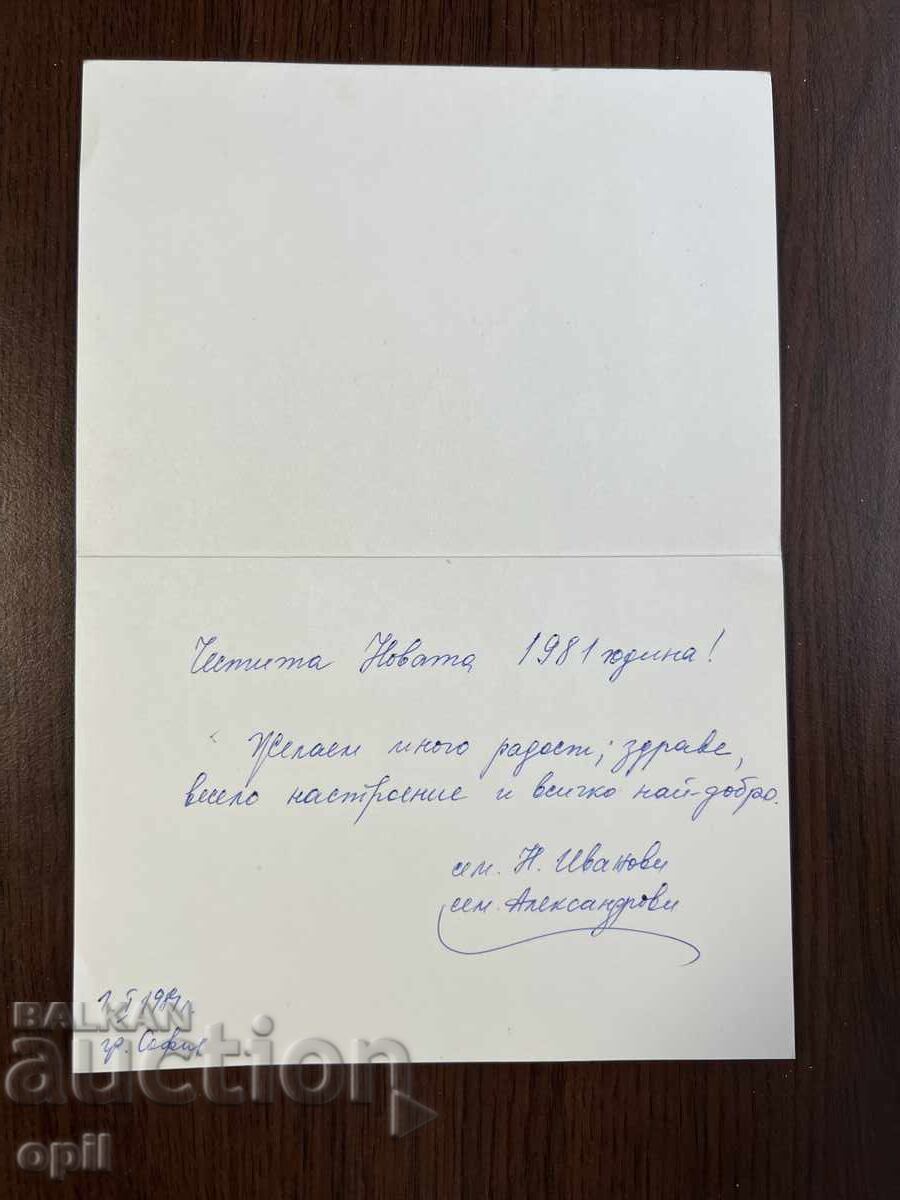 Честита Новата 1981 година!
Желаем много радост, здраве,
весело настроение и всичко най-добро.
сем. Н. Иванови
сем. Александрови
1. I 1981 г.
гр. София
BALKAN
auction
opil